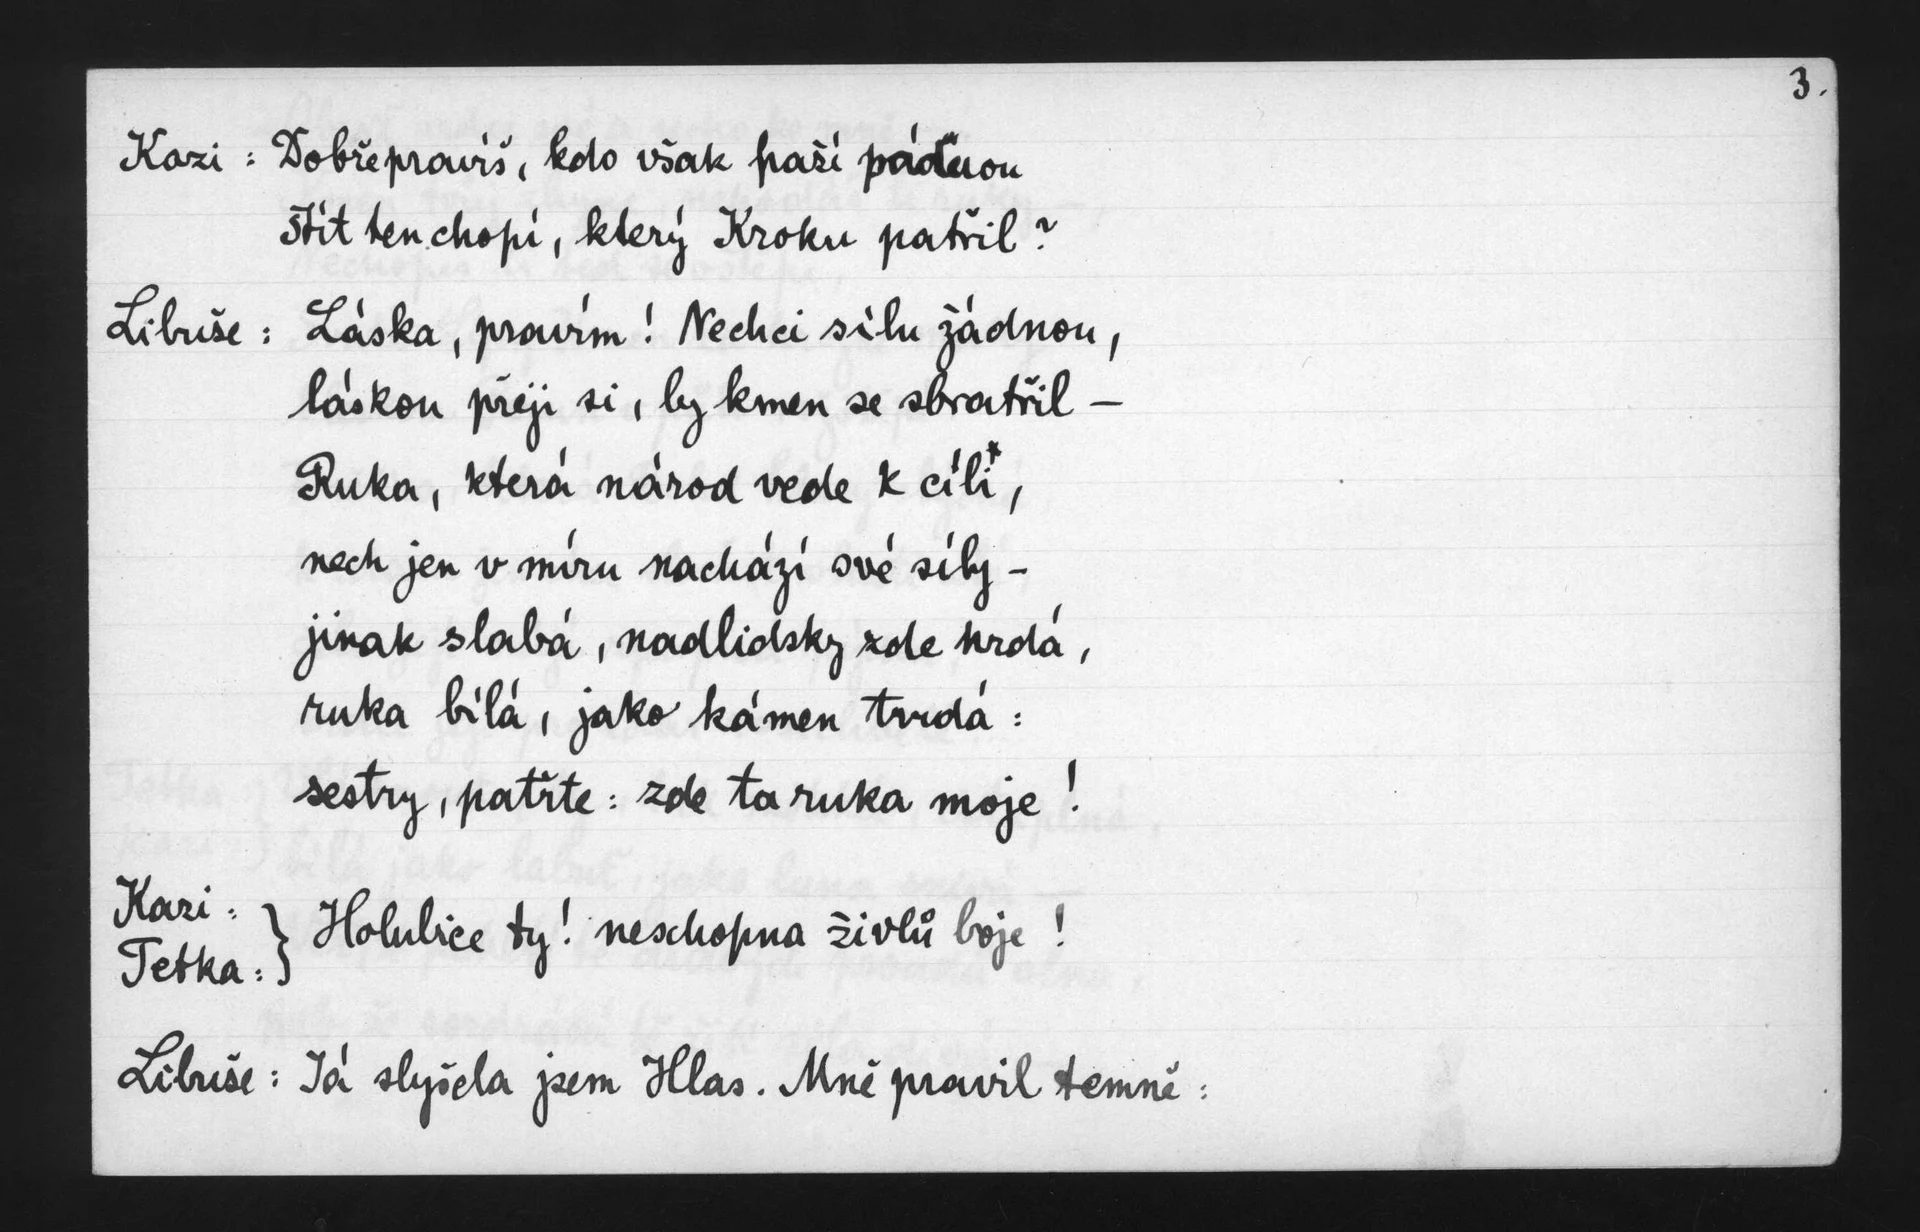 3.
Kazi: Dobře pravíš, kdo však paží pádnou
štít ten chopí, který Kroku patřil?
Libuše: Láska, pravím! Nechci sílu žádnou,
láskou přeji si, by kmen se sbratřil –
Ruka, která národ vede k cíli*,
nech jen v míru nachází své síly –
jinak slabá, nadlidsky zde hrdá,
ruka bílá, jako kámen tvrdá:
sestry, patřte: zde ta ruka moje!
Kazi: } Holubice ty! neschopna živlů boje!
Tetka: }
Libuše: Já slyšela jsem Hlas. Mně pravil temně: